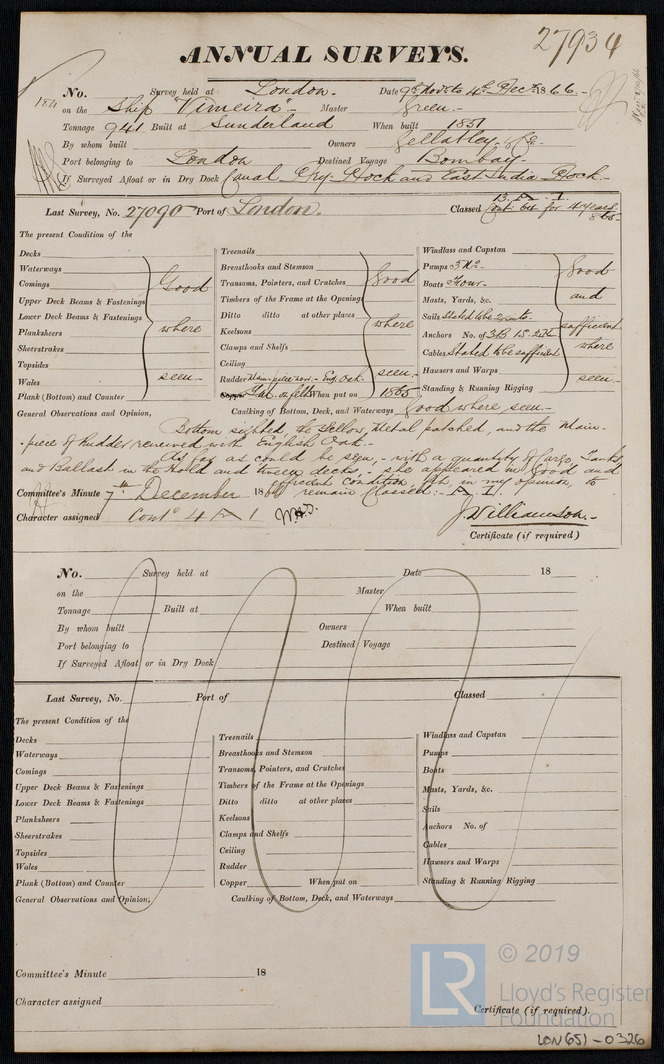 27934
ANNUAL SURVEYS.
No. Survey held at London. Date 9th Nov to 4th Decr 1866.
on the Ship "Vimeira" Master Green.
Tonnage 941 Built at Sunderland When built 1851
By whom built Owners Gellatley & Co.
Port belonging to London Destined Voyage Bombay.
If Surveyed Afloat or in Dry Dock Canal Dry Dock and East India Dock.
Last Survey, No. 27090 Port of London. Classed
The present Condition of the
Decks
Waterways
Comings
Upper Deck Beams & Fastenings
Lower Deck Beams & Fastenings
Planksheers
Sheerstrakes
Topsides
Wales
Plank (Bottom) and Counter
Good where seen
Treenails
Breasthooks and Stemson
Transoms, Pointers, and Crutches
Timbers of the Frame at the Openings
Ditto ditto at other places
Keelsons
Clamps and Shelfs
Ceiling
Rudder Main piece new. Eng. Oak
Copper Y.M. on felt When put on 1865
Good where seen
Windlass and Capstan
Pumps 3 No.
Boats Four.
Masts, Yards, &c.
Sails Stated to be 2 suits.
Anchors No. of 3B 1S. 2K
Cables Stated to be sufficient
Hawsers and Warps
Standing & Running Rigging
Good and sufficient where seen
General Observations and Opinion, Caulking of Bottom, Deck, and Waterways Good where seen.
Bottom sighted, the Yellow Metal patched, and the Main-
piece of Rudder renewed with English Oak.
As far as could be seen, with a quantity of Cargo, Tanks
and Ballast in the Hold and tween decks, she appeared in good and
efficient condition, fit, in my opinion, to
remain Classed. A 1.
Committee's Minute 7th December 1866
Character assigned Contd 4 A 1
J. Williamson.
Certificate (if required)
No. Survey held at Date 18
on the Master
Tonnage Built at When built
By whom built Owners
Port belonging to Destined Voyage
If Surveyed Afloat or in Dry Dock
Last Survey, No. Port of Classed
The present Condition of the
Decks
Waterways
Comings
Upper Deck Beams & Fastenings
Lower Deck Beams & Fastenings
Planksheers
Sheerstrakes
Topsides
Wales
Plank (Bottom) and Counter
Treenails
Breasthooks and Stemson
Transoms, Pointers, and Crutches
Timbers of the Frame at the Openings
Ditto ditto at other places
Keelsons
Clamps and Shelfs
Ceiling
Rudder
Copper When put on
Windlass and Capstan
Pumps
Boats
Masts, Yards, &c.
Sails
Anchors No. of
Cables
Hawsers and Warps
Standing & Running Rigging
General Observations and Opinion, Caulking of Bottom, Deck, and Waterways
Committee's Minute 18
Character assigned
Certificate (if required).
LR © 2019
Lloyd's Register
Foundation
LON651-0326